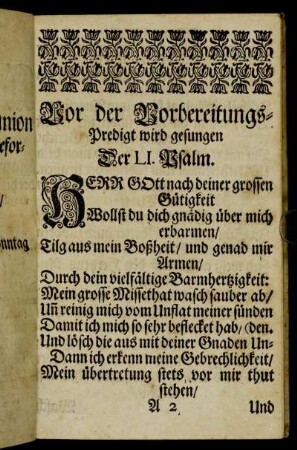 nion
efor-
/
onntag
Vor der Vorbereitungs-
Predigt wird gesungen
Der LI. Psalm.
HERR GOtt nach deiner grossen
Gütigkeit
Wollst du dich gnädig über mich
erbarmen/
Tilg aus mein Boßheit/ und genad mir
Armen/
Durch dein vielfältige Barmhertzigkeit:
Mein grosse Missethat wasch sauber ab/
Uñ reinig mich vom Unflat meiner sünden
Damit ich mich so sehr beflecket hab/ (den.
Und lösch die aus mit deiner Gnaden Un-
Dann ich erkenn meine Gebrechlichkeit/
Mein übertretung stets vor mir thut
stehen/
A 2 Und